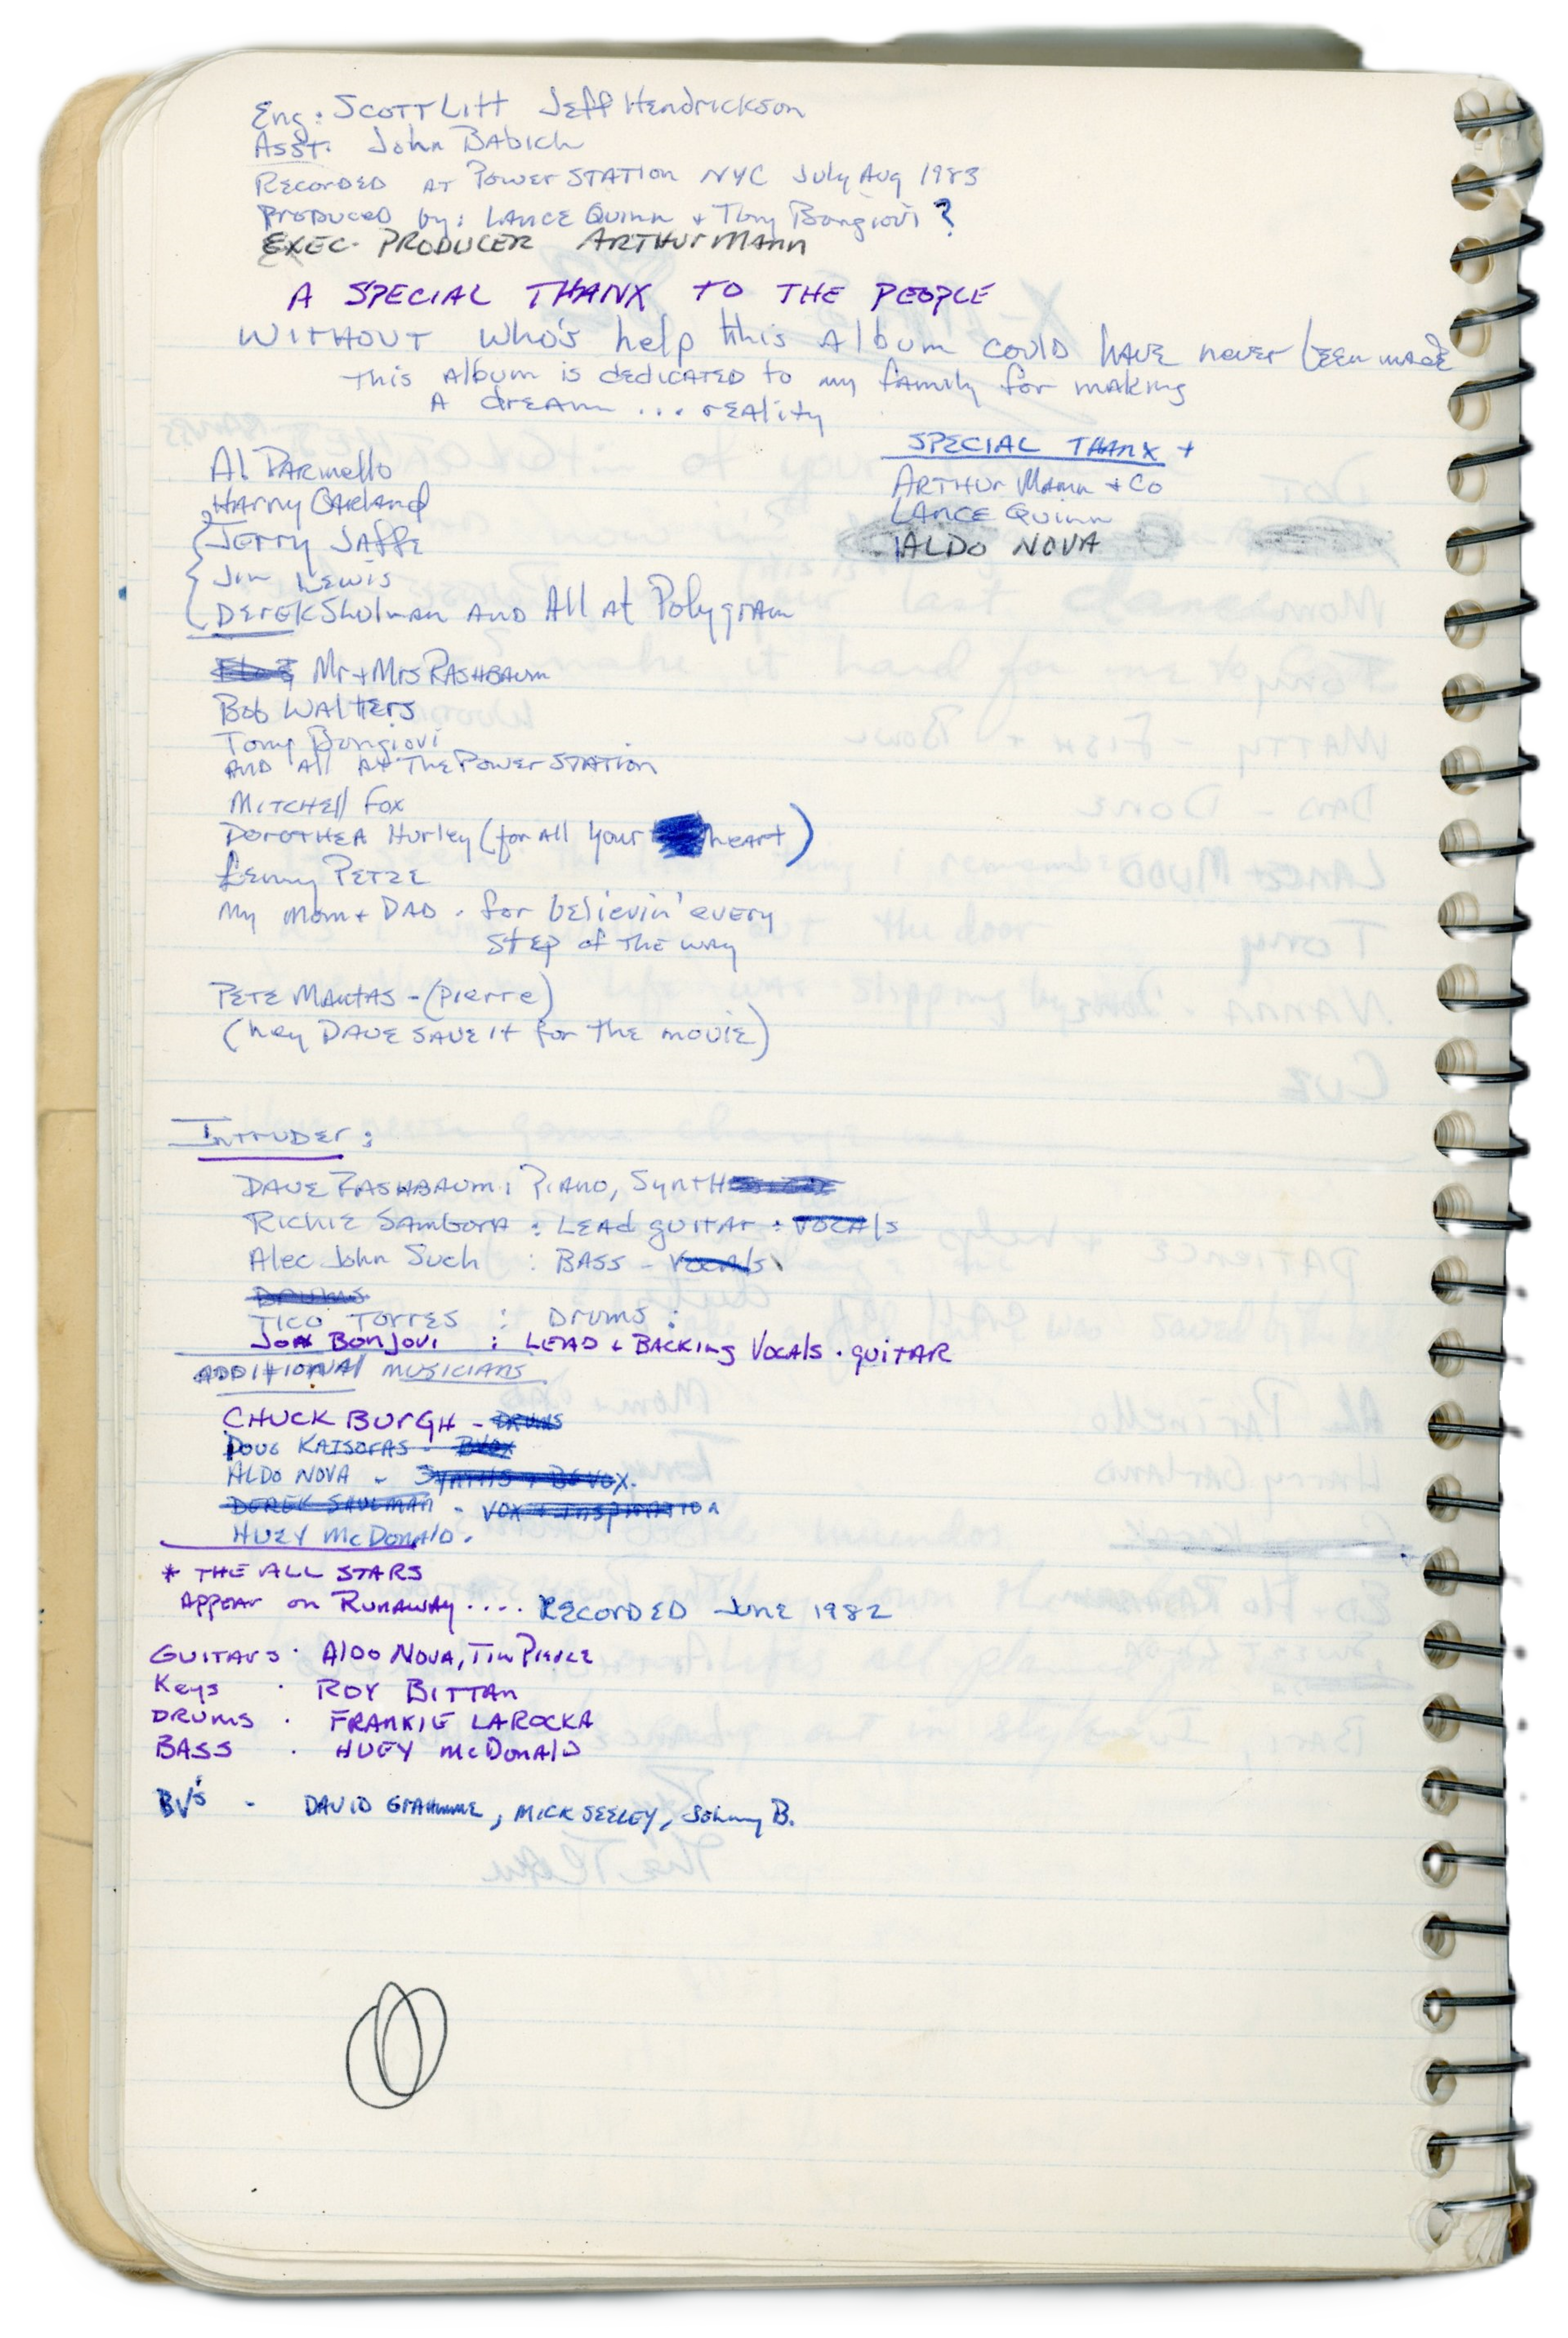 Eng: Scott Litt Jeff Hendrickson
Asst. John Babich
Recorded at Power Station NYC July Aug 1983
Produced by: Lance Quinn + Tony Bongiovi ?
EXEC. PRODUCER ARTHUR MANN
A SPECIAL THANX TO THE PEOPLE
WITHOUT who's help this Album could have never been made
This Album is dedicated to my family for making
A dream ... reality
Al Parinello
Harry Garland
Jerry Jaffe
Jim Lewis
Derek Shulman AND All at Polygram
SPECIAL THANX +
ARTHUR MANN + Co
LANCE QUINN
ALDO NOVA
Mr + Mrs RASHBAUM
Bob Walters
Tony Bongiovi
AND All At The Power Station
Mitchell Fox
Dorothea Hurley (for all your heart)
Lenny Petze
My Mom + DAD - for believin' every
step of the way
PETE MANTAS - (Pierre)
(hey DAVE SAVE it for the movie)
INTRUDER:
DAVE RASHBAUM: PIANO, Synth
RICHIE SAMBORA : LEAd guitar : VOCAls
Alec John Such : BASS - Vocals
DRUMS
TICO TORRES : Drums :
JON BONJOVI : LEAD & BACKING VOCAls . guitAR
ADDITIONAl MUSICIANS
CHUCK BURGH - DRUMS
DOUG KATSOFAS - BVOX
ALDO NOVA - SYNTHS + BG VOX.
DEREK SHULMAN - VOX + INSPIRATION
HUEY McDONAlD.
* THE ALL STARS
APPEAR on RUNAWAY .... RECORDED JUNE 1982
GUITARS . AlDO NOVA, TIM PIERCE
Keys . ROY BITTAN
DRUMS . FRANKIE LAROCKA
BASS . HUEY McDONAlD
BV's - DAVID GRAHMME, MICK SEELEY, Johnny B.